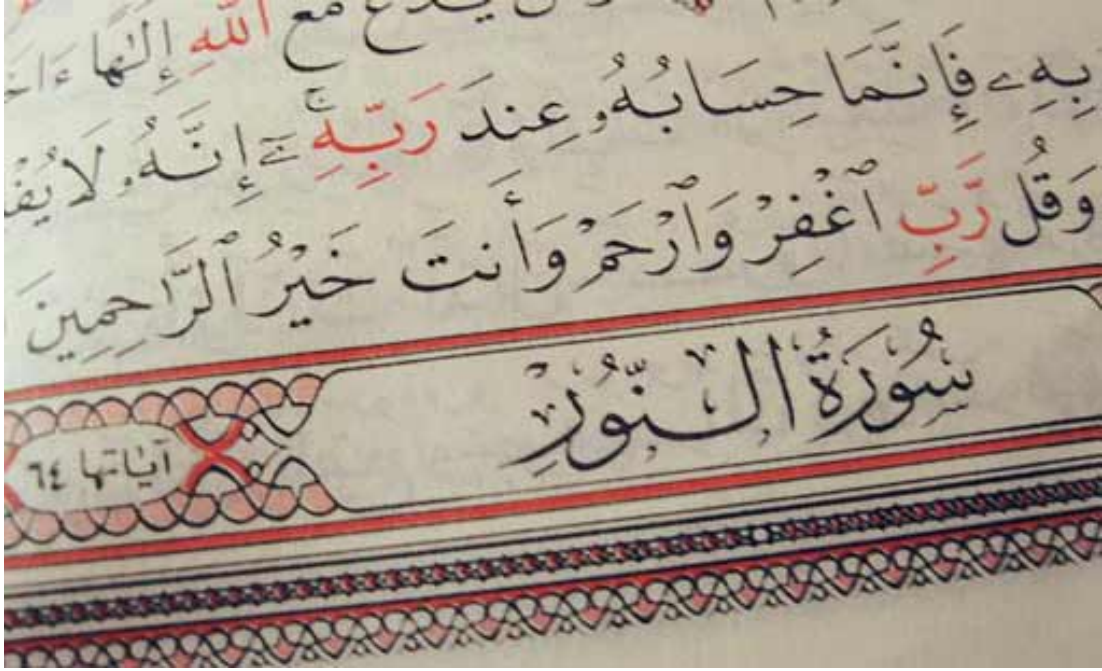 يَدْعُ مَعَ اللَّهِ إِلَٰهًا
بِهِۦ فَإِنَّمَا حِسَابُهُۥ عِندَ رَبِّهِۦٓ ۚ إِنَّهُۥ لَا
وَقُل رَّبِّ ٱغْفِرْ وَٱرْحَمْ وَأَنتَ خَيْرُ ٱلرَّٰحِمِينَ
سُورَةُ النُّورِ
آياتها ٦٤